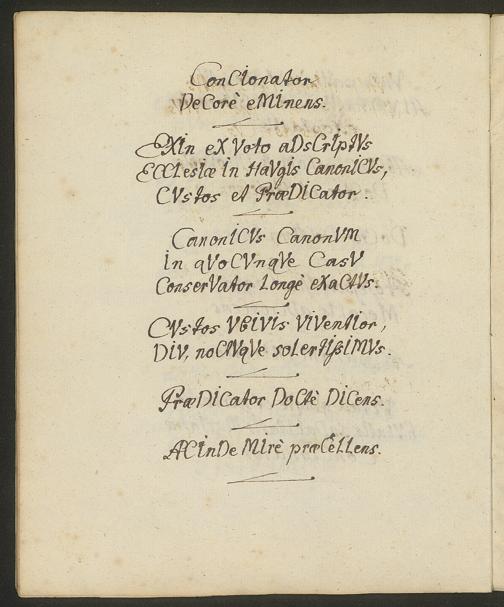 ConCIonator
DeCorè eMInens.
EXIn eX Voto aDsCrIptVs
ECCLesIæ In HaVgIs CanonICVs,
CVstos et PræDICator.
CanonICVs CanonVM
In qVoCVnqVe CasV
ConserVator Longè eXaCtVs.
CVstos VbIVIs VIVentIor,
DIV, noCtVqVe soLertIßIMVs.
PræDICator DoCtè DICens.
ACInDe MIrè præCeLLens.